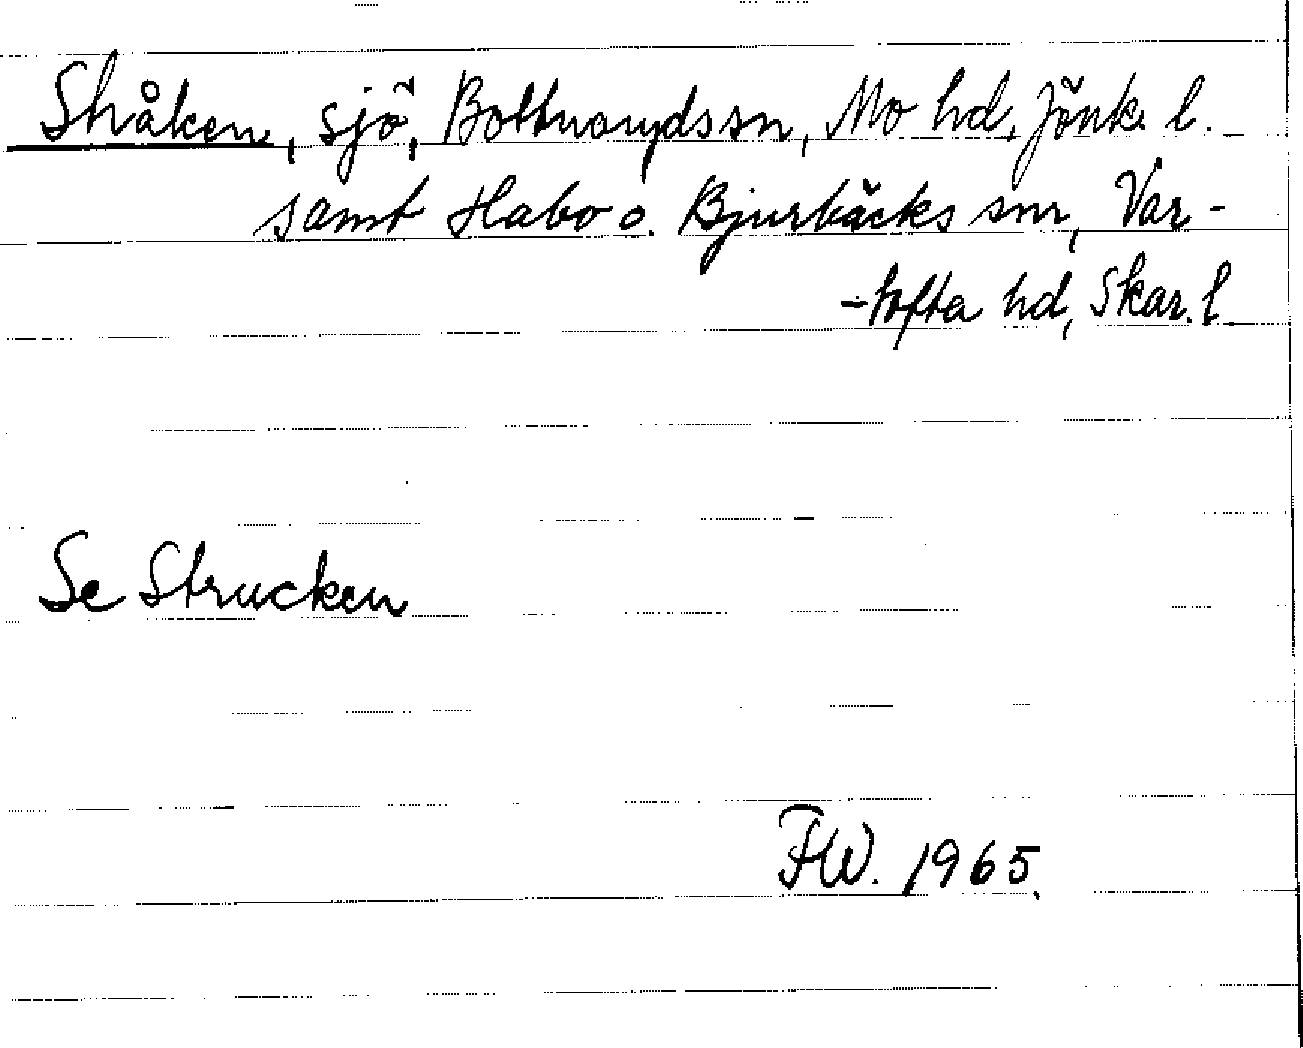 Stråken, sjö, Bottnaryds sn, Mo hd, Jönk. l.
samt Habo o. Bjurbäcks snr, Var-
-tofta hd, Skar. l.
Se Strucken
FW. 1965.